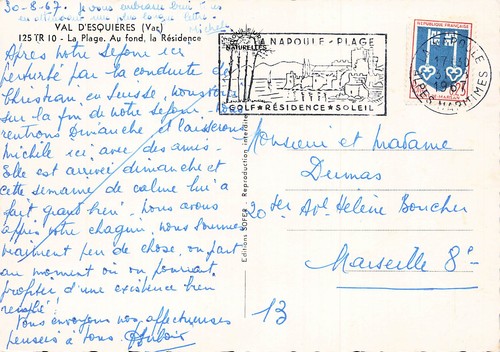 30-8-67. je vous embrasse bien fort
en attendant une plus longue lettre.
Michèle
VAL D'ESQUIÈRES (Var)
125 TR 10 - La Plage. Au fond, la Résidence
Après notre séjour ici
perturbé par la conduite de
Christian, en Suisse, nous
sur la fin de notre séjour. Nous
rentrons Dimanche et laisserons
Michèle ici avec des amis.
Elle est arrivée dimanche et
cette semaine de calme lui a
fait grand bien. Nous avons
appris votre chagrin, nous sommes
vraiment peu de chose, on part
au moment où on pourrait
profiter d'une existence bien
remplie!
Nous envoyons nos affectueuses
pensées à tous.
Editions SOFER - Reproduction interdite
NATURELLES
LA NAPOULE-PLAGE
GOLF★RÉSIDENCE★SOLEIL
LA NAPOULE
17
1967
ALPES MARITIMES
REPUBLIQUE FRANÇAISE
Monsieur et Madame
Dumas
20 ter Ave Hélène Boucher
Marseille 8e
13